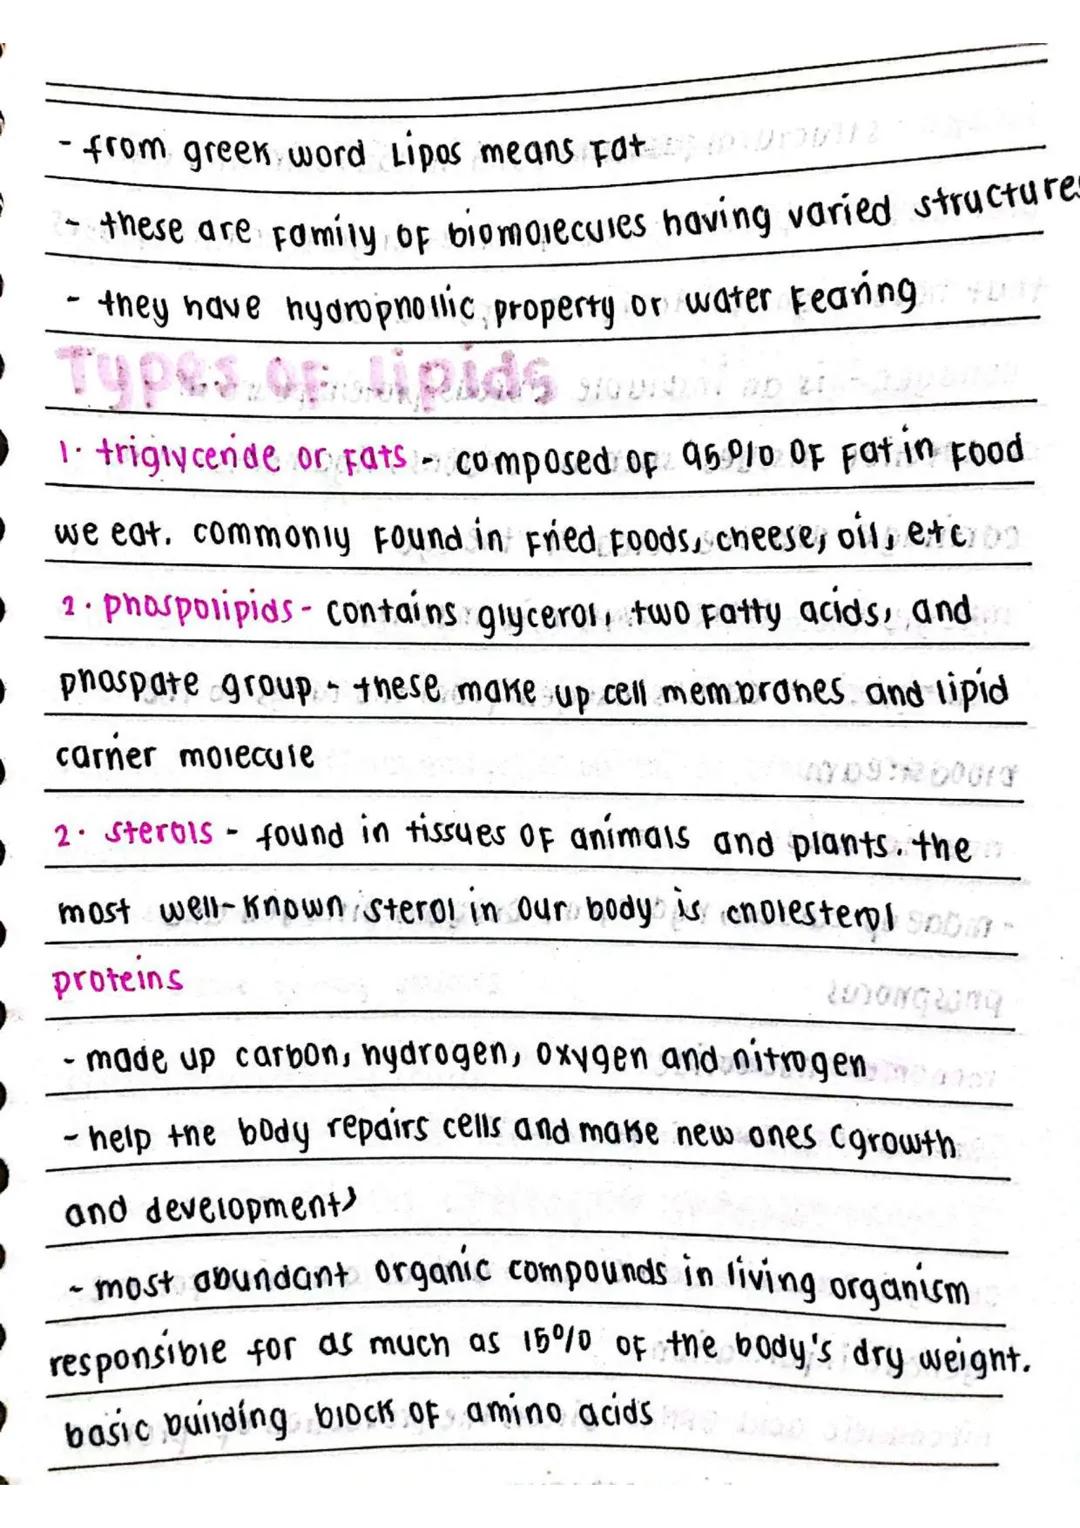 - from greek word Lipos means Fat
- these are Family of biomolecules having varied structures
- they have hydrophollic property or water fearing
Types of lipids
1. triglyceride or Fats - composed of 95% OF Fat in Food
we eat. commonly Found in Fried Foods, cheese, oil, etc.
2. phospolipids - contains glycerol, two Fatty acids, and
phospate group - these make up cell membranes and lipid
carrier molecule
2. sterols - found in tissues OF animals and plants. the
most well-known sterol in our body is cholesterol
proteins
- made up carbon, hydrogen, oxygen and nitrogen
- help the body repairs cells and make new ones (growth
and development)
- most abundant organic compounds in living organism
responsible for as much as 15% of the body's dry weight.
basic building block of amino acids